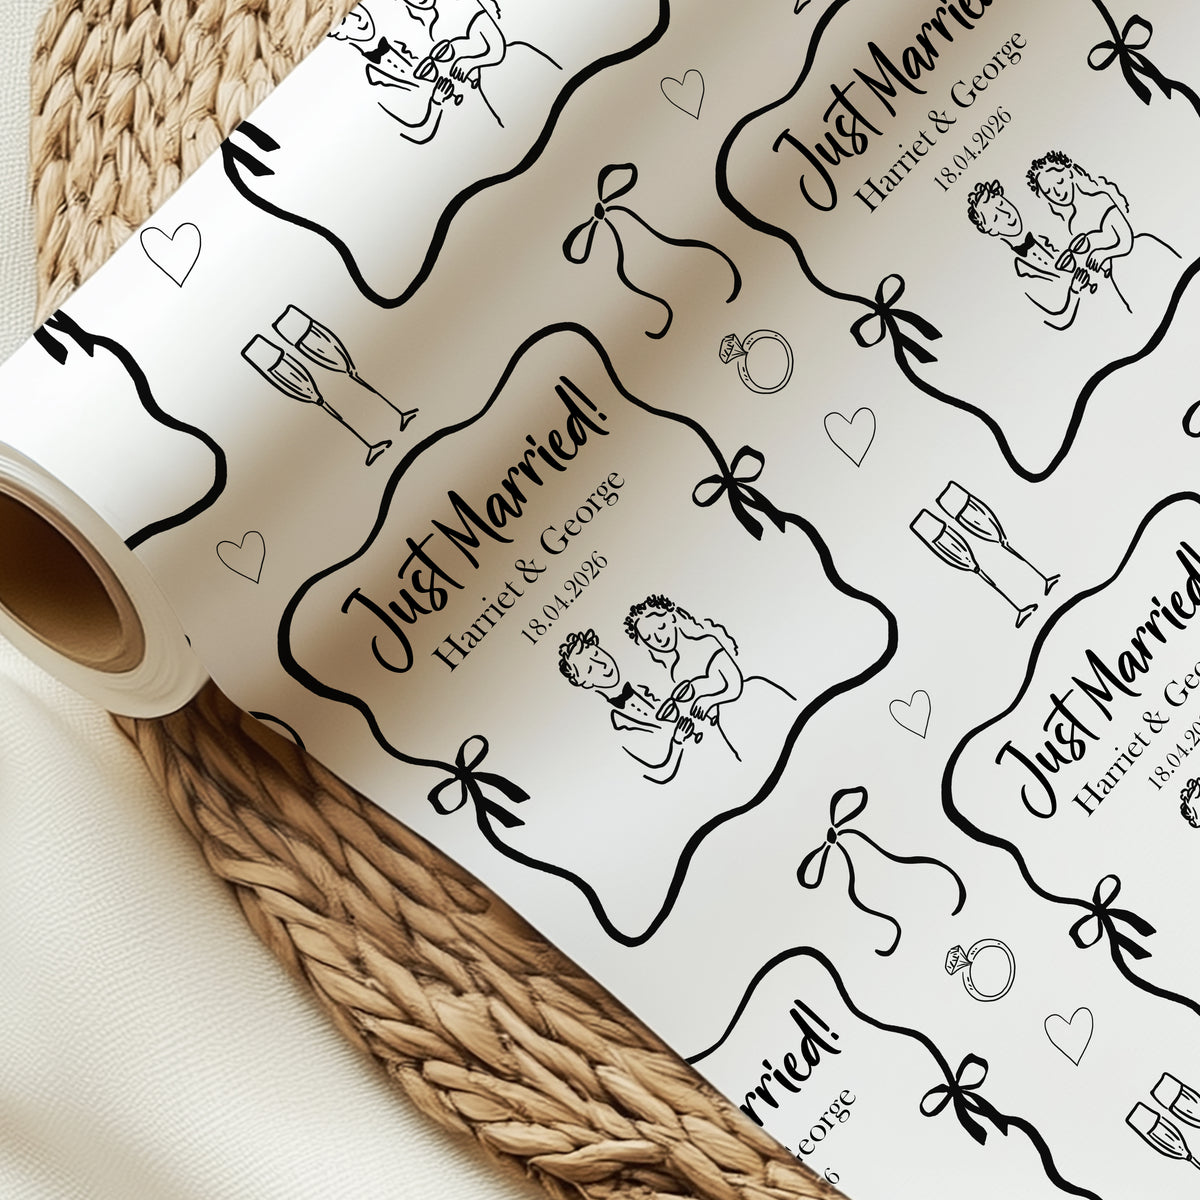 Just Married
Harriet & George
18.04.2026
Just Married!
Harriet & George
18.04.2026
Just Married!
Harriet &
18.04.20
rried!
eorge
6